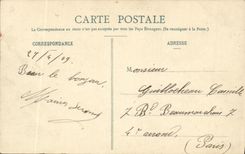 CARTE POSTALE
La Correspondance au recto n'est pas acceptée par tous les Pays Étrangers. (Se renseigner à la Poste.)
CORRESPONDANCE
ADRESSE
27/4/09
Monsieur
Guillocheau Camille
7 Bd Beaumarchais 7
4e arrond
(Paris)